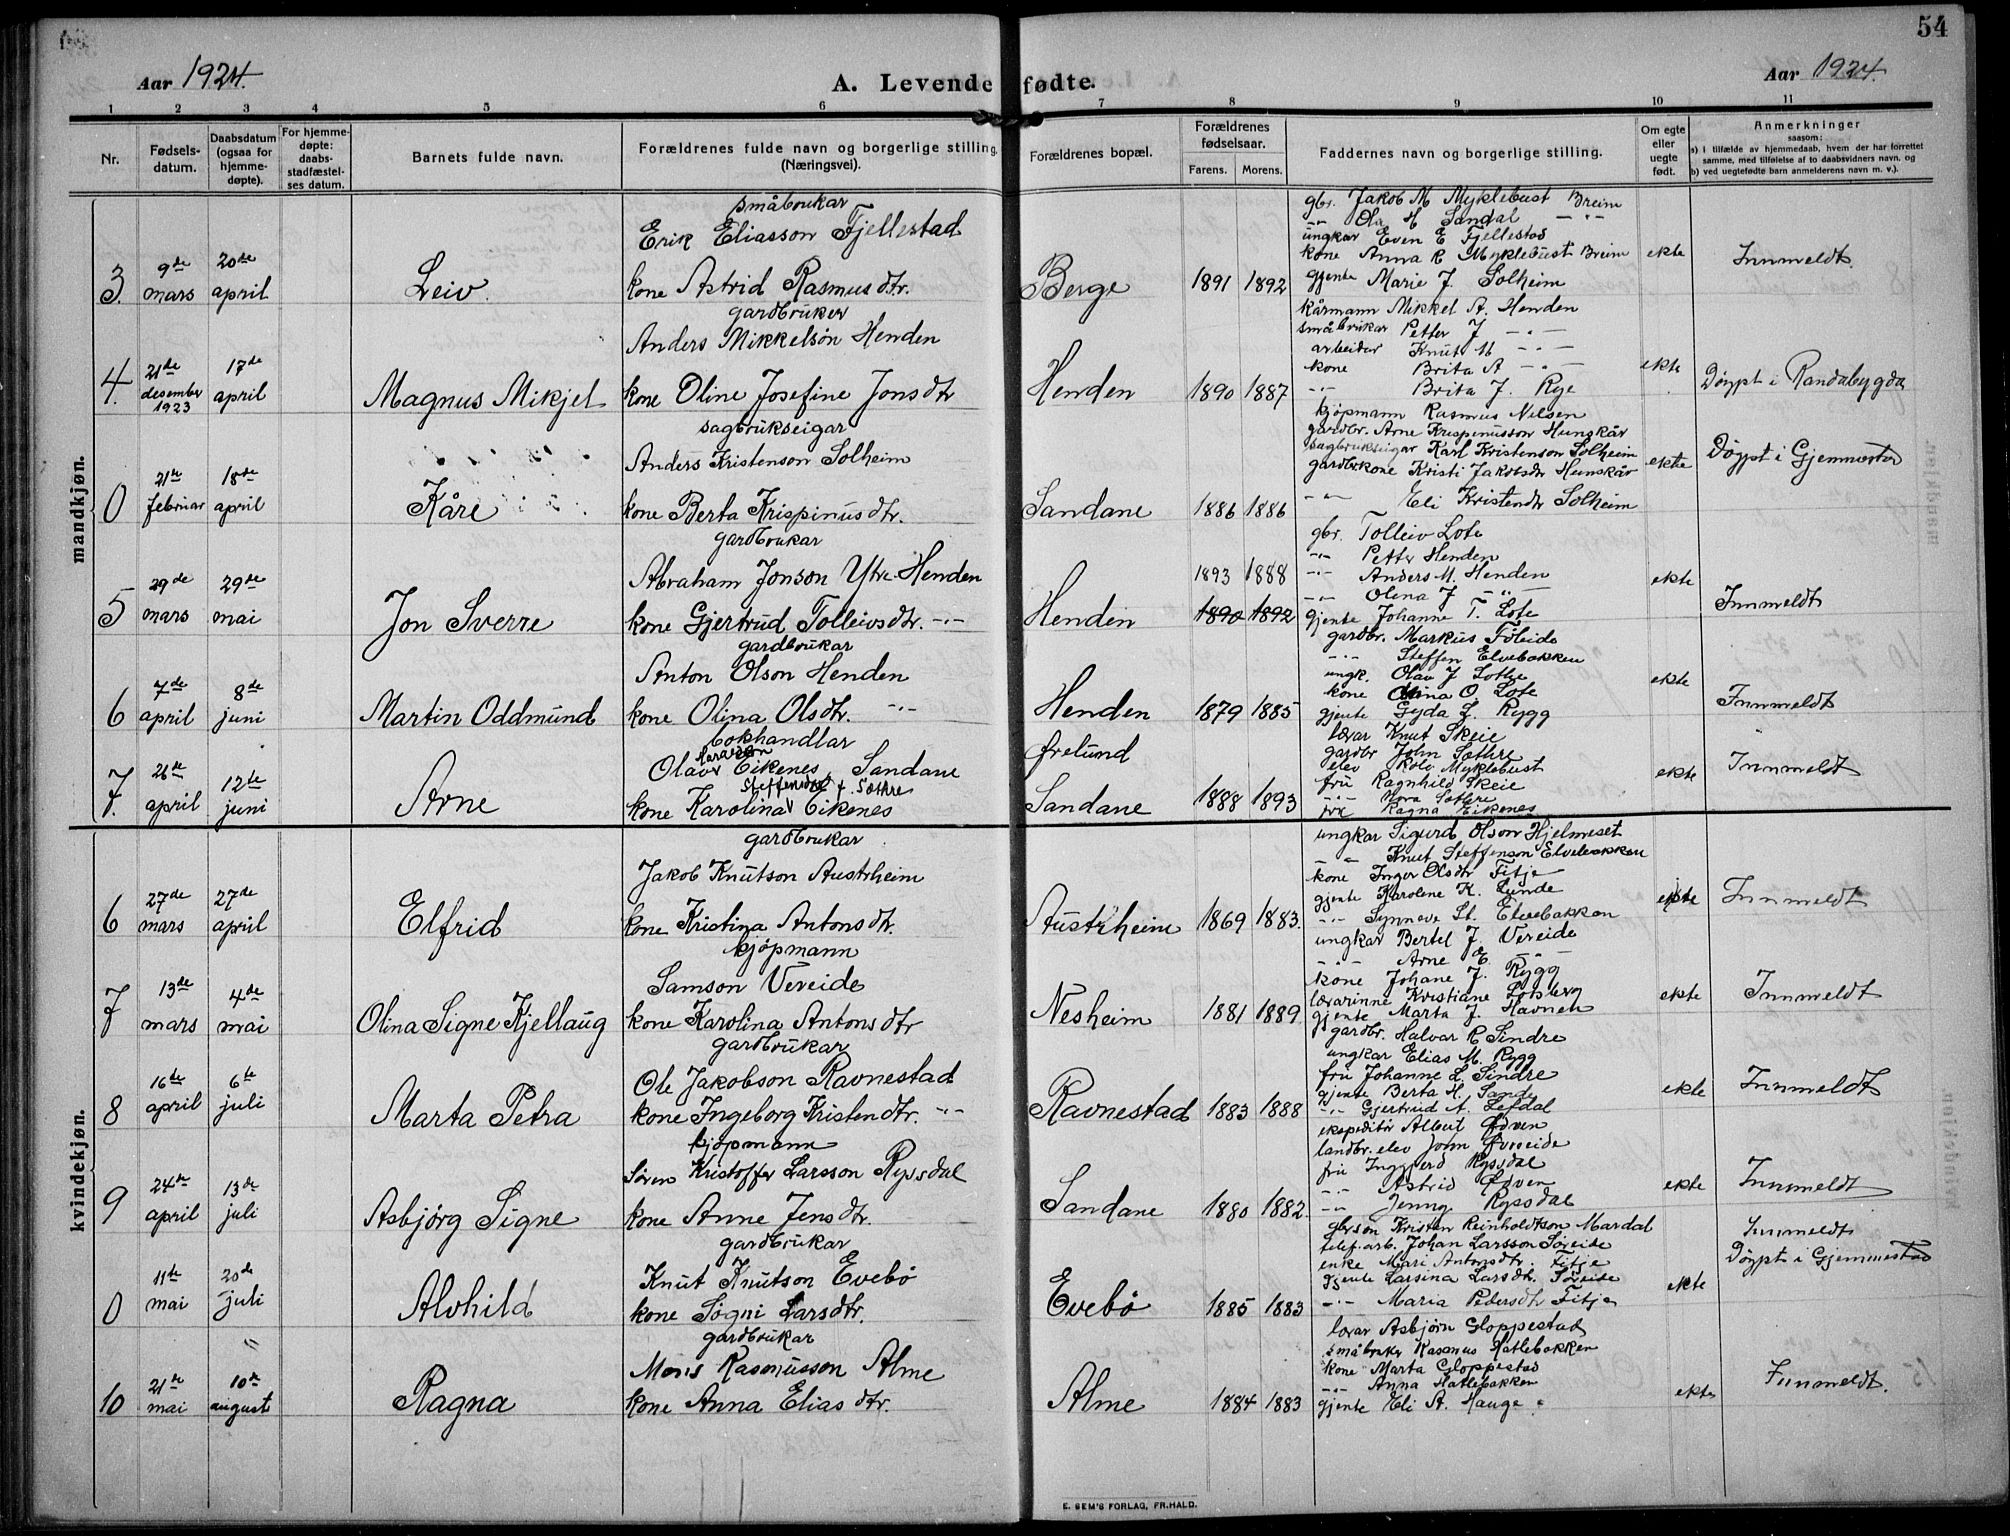 54
Aar 1924. A. Levende fødte. Aar 1924.
1 2 3 4 5 6 7 8 9 10 11
Nr.
Fødsels-
datum.
Daabsdatum
(ogsaa for
hjemme-
døpte).
For hjemme-
døpte:
daabs-
stadfæstel-
ses datum.
Barnets fulde navn.
Forældrenes fulde navn og borgerlige stilling
(Næringsvei).
Forældrenes bopæl.
Forældrenes
fødselsaar.
Farens. Morens.
Faddernes navn og borgerlige stilling.
Om egte
eller
uegte
født.
Anmerkninger
saasom:
a) I tilfælde av hjemmedaab, hvem der har forrettet
samme, med tilføielse af to daabsvidners navn, og
b) ved uegtefødte barn anmelderens navn m. v.).
mandkjøn.
3. 9de mars 20de april Leiv.
småbrukar
Erik Eliasson Fjellestad
kone Astrid Rasmusdtr.
Berge 1891 1892
gbr. Jakob M Myklebust Breim
-"- Ola H Sandal -"-
ungkar Even E Fjellestad
kone Anna R Myklebust Breim
gjente Marie J. Solheim
ekte Innmeldt.
4. 21de desember 1923 17de april Magnus Mikjel
gardbruker
Anders Mikkelson Henden
kone Oline Josefine Jonsdtr
Henden 1890 1887
kårmann Mikkel A. Henden
småbrukar Petter J -"-
arbeider Knut M -"-
kone Brita A -"-
-"- Brita J. Rye
ekte Döypt i Randabygda
0 21de februar 18de april Kåre
sagbrukseigar
Anders Kristenson Solheim
kone Berta Krispinusdtr.
Sandane 1886 1886
kjøpmann Rasmus Nilsen
gardbr. Arne Krispinusson Hunskår
sagbrukseigar Karl Kristenson Solheim
gardbrkone Kristi Jakobsdtr Hunskår
-"- Eli Kristendtr Solheim
ekte Döypt i Gjemmestad
5 29de mars 29de mai Jon Sverre
gardbrukar
Abraham Jonson Ytre-Henden
kone Gjertrud Tolleivsdtr. -"-
Henden 1893 1888
1890 1892
gbr. Tolleiv Lote
-"- Petter Henden
-"- Anders M. Henden
-"- Olena J -"-
gjente Johanne T. Lote
ekte Innmeldt
6 7de april 8de juni Martin Oddmund
gardbrukar
Anton Olson Henden
kone Olina Olsdtr. -"-
Henden 1879 1885
gardbr. Markus Föleide
-"- Steffen Elvebakken
ungk. Olav J Sothre
kone Olina O. Lote
gjente Gyda L. Rygg
ekte Innmeldt
7. 26de april 12te juni Arne
bokhandlar
Olav Eikenes Sandane
kone Karolina Steffensdtr f. Sæthre Eikenes
Sandane 1888 1893
lærar Knut Skeie
gardbr John Sæthre
elev Myklebust
fru Ragnhild Skeie
-"- Nora Sæthre
frk Ragna Eikenes
ekte Innmeldt
kvindekjøn.
6 27de mars 27de april Elfrid
gardbrukar
Jakob Knutson Austrheim
kone Kristina Antonsdtr.
Austrheim 1869 1883.
ungkar Sigurd Olson Hjelmeset
-"- Knut Steffenson Elvebakken
kone Inger Olsdtr Fitje
gjente Karolene K. Lunde
-"- Synneve St. Elvebakken
ekte Innmeldt
7 13de mars 4de mai Olina Signe Kjellaug
kjøpmann
Samson Vereide
kone Karolina Antonsdtr
Nesheim 1881 1889
ungkar Bertel J Vereide
-"- Arne E. -"-
kone Johane J. Rygg
lærarinne Kristiane Lotsberg
gjente Marta J. Havneh
ekte Innmeldt
8 16de april 6te juli Marta Petra
gardbrukar
Ole Jakobson Ravnestad
kone Ingeborg Kristendtr. -"-
Ravnestad 1883 1888
gardbr. Halvar R Sindre
ungkar Elias M. Rygg
fru Johanne L. Sindre
gjente Berta H. Sande
-"- Gjertrud A. Lefdal
ekte Innmeldt
9 24de april 13de juli Asbjörg Signe
kjöpmann
Sören Kristoffer Larsson Ryssdal
kone Anne Jensdtr.
Sandane 1880 1882.
ekspeditör Albert Öoven
landbr. elev John Övreeide
fru Inggjerd Ryssdal
-"- Astrid Öoven
-"- Jenny Ryssdal
ekte Innmeldt
0 11te mai 20de juli Alvhild
gardbrukar
Knut Knutson Evebö
kone Sögni Larsdtr.
Evebö 1885 1883
gbrson Kristen Reinholdtson Mardal
telef.arb. Johan Larsson Søreide
enke Mari Antonsdtr. Fitje
gjente Larsina Larsdtr. Söreide
-"- Maria Pedersdtr Fitje
ekte Innmeldt
Döypt i Gjemmestad
10 21de mai 10de august Ragna
gardbrukar
Mons Rasmusson Alme
kone Anna Eliasdtr.
Alme 1884 1883
lærar Asbjörn Gloppestad
småbruker Rasmus Hatlebakken
kone Marta Gloppestad
-"- Anna Hatlebakken
gjente Eli A. Hauge
ekte Innmeldt.
E. SEM'S FORLAG, FR.HALD.